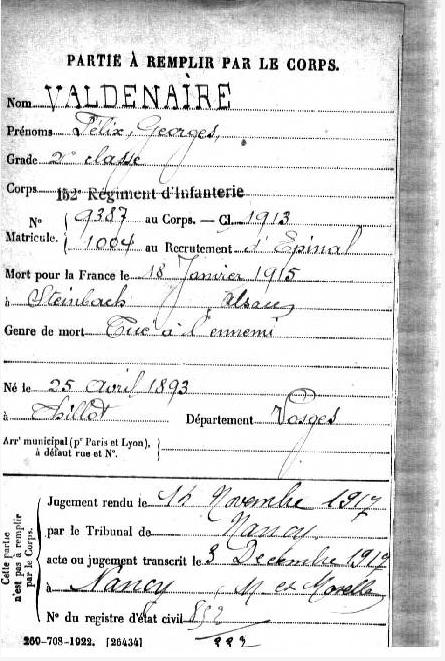 PARTIE À REMPLIR PAR LE CORPS.
Nom VALDENAIRE
Prénoms Félix, Georges,
Grade 2e classe
Corps 152e Régiment d'Infanterie
No Matricule. 9387 au Corps. — Cl. 1913
1004 au Recrutement d'Epinal
Mort pour la France le 18 Janvier 1915
à Steinbach, Alsace
Genre de mort Tué à l'ennemi
Né le 25 avril 1893
à Thillot Département Vosges
Arrt municipal (pr Paris et Lyon),
à défaut rue et No.
Cette partie
n'est pas à remplir
par le Corps.
Jugement rendu le 14 Novembre 1917
par le Tribunal de Nancy
acte ou jugement transcrit le 8 Decembre 1917
à Nancy M. et Moselle
No du registre d'état civil
260-708-1922. [26434]